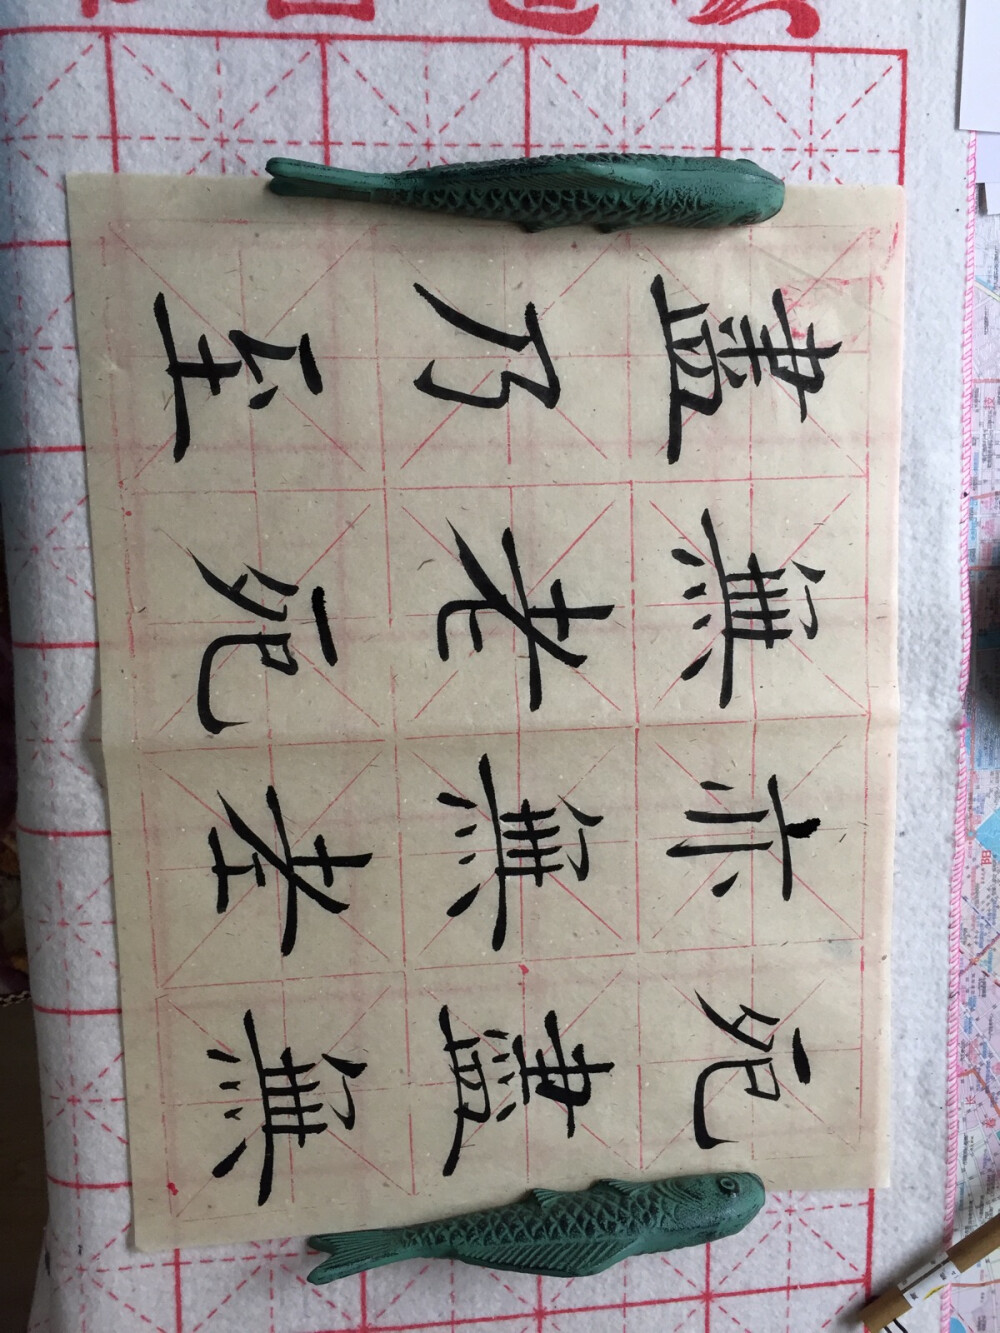 盡乃至
無老死
亦無老
死盡無